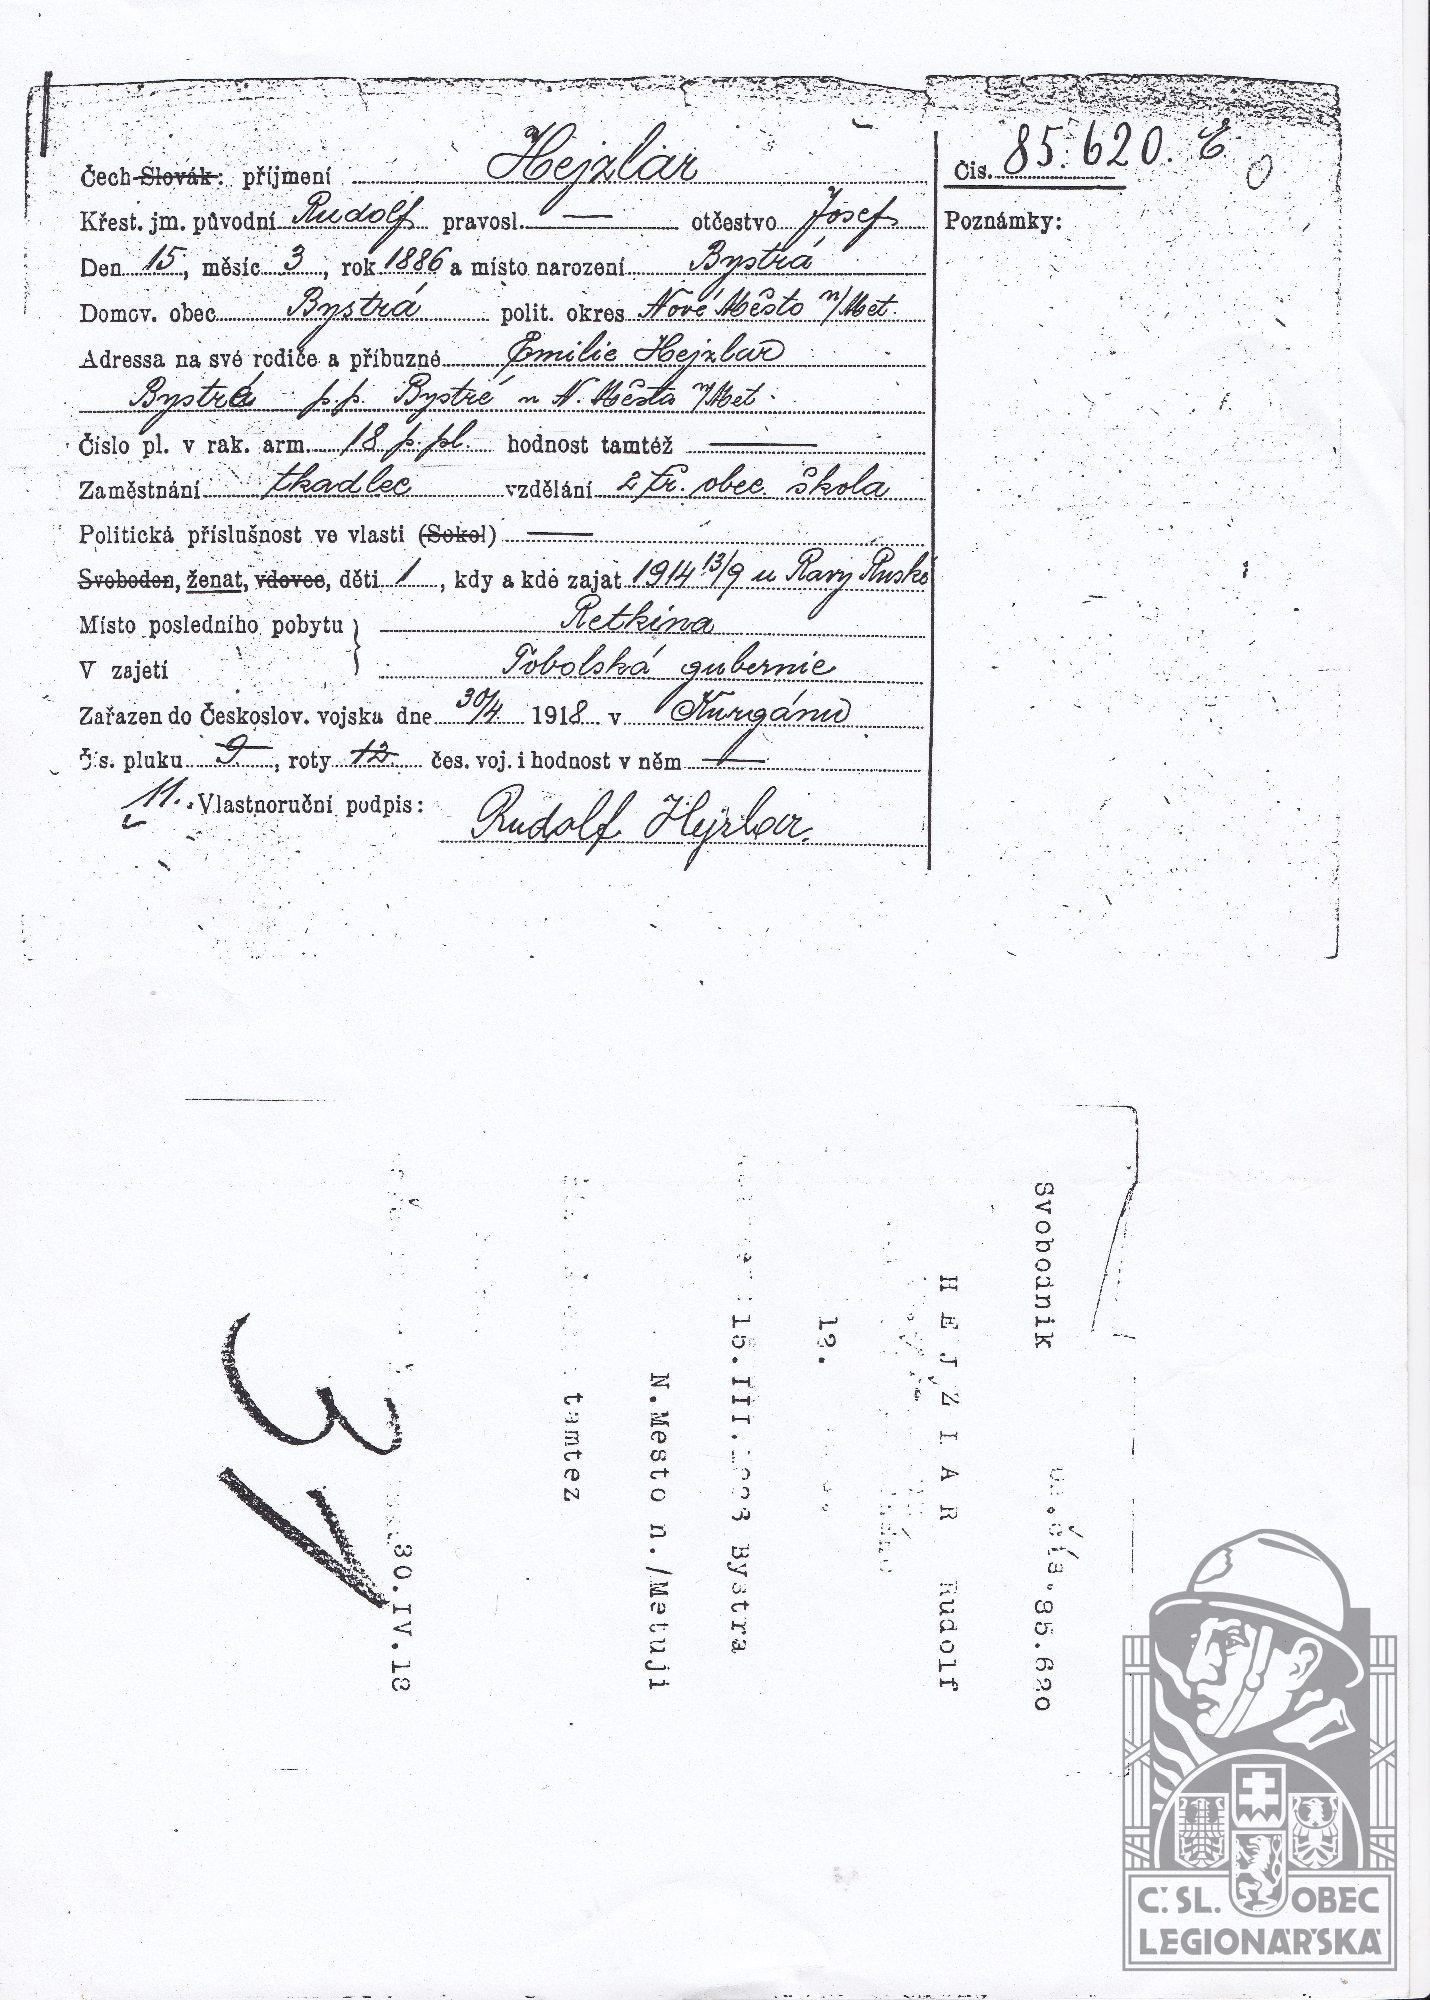 Čech-Slovák: příjmení Hejzlar
Čís. 85.620. E
Křest. jm. původní Rudolf pravosl. — otčestvo Josef
Poznámky:
Den 15, měsíc 3, rok 1886 a místo narození Bystrá
Domov. obec Bystrá polit. okres Nové Město n/Met.
Adressa na své rodiče a příbuzné Emilie Hejzlar
Bystrá p.p. Bystré u N. Města n/Met.
Číslo pl. v rak. arm. 18 p. pl. hodnost tamtéž —
Zaměstnání tkadlec vzdělání 2 tř. obec. škola
Politická příslušnost ve vlasti (Sokol) —
Svoboden, ženat, vdovec, děti 1, kdy a kde zajat 1914 13/9 u Ravy Ruské
Místo posledního pobytu Retkina
V zajetí Tobolská gubernie
Zařazen do Českoslov. vojska dne 30/4 1918 v Kurgánu
Čís. pluku 9, roty 12 čes. voj. i hodnost v něm —
11. Vlastnoruční podpis: Rudolf Hejzlar.
Svobodník 85.620
HEJZLAR Rudolf
12.
15.III. Bystra
N.Mesto n./Metují
tamtez
30.IV.18
31
Č.SL. OBEC
LEGIONÁŘSKÁ